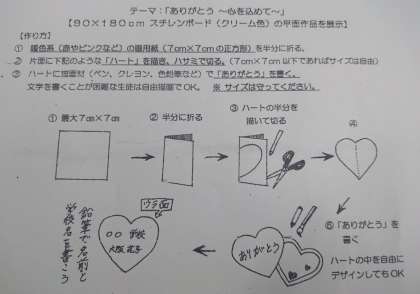 テーマ：「ありがとう ～心を込めて～」
【90×180cm スチレンボード（クリーム色）の平面作品を展示】
【作り方】
① 暖色系（赤やピンクなど）の画用紙（7cm×7cmの正方形）を半分に折る。
② 片面に下記のような「ハート」を描き、ハサミで切る。（7cm×7cm以下であればサイズは自由）
③ ハートに描画材（ペン、クレヨン、色鉛筆など）で「ありがとう」を書く。
文字を書くことが困難な生徒は自由描画でOK。 ※ サイズは守ってください。
① 最大7cm×7cm
② 半分に折る
③ ハートの半分を
描いて切る
④
⑤「ありがとう」を
書く
ハートの中を自由に
デザインしてもOK
ありがとう
ウラ面
○○ 学校
大阪 花子
鉛筆で名前と
学校名を書こう